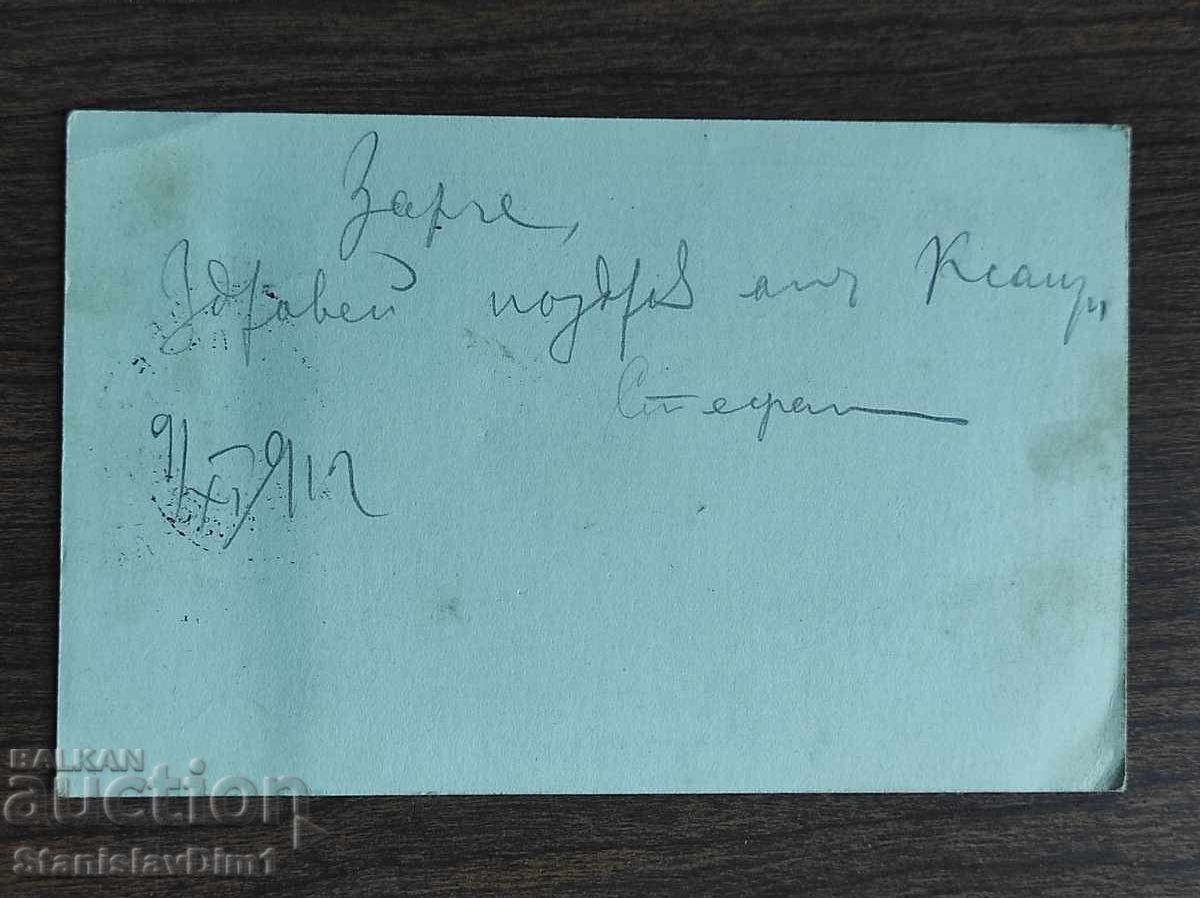 Зарче,
Здравей поздрав отъ Ксанти
Стефан
9/XI 912
BALKAN
auction
StanislavDim1